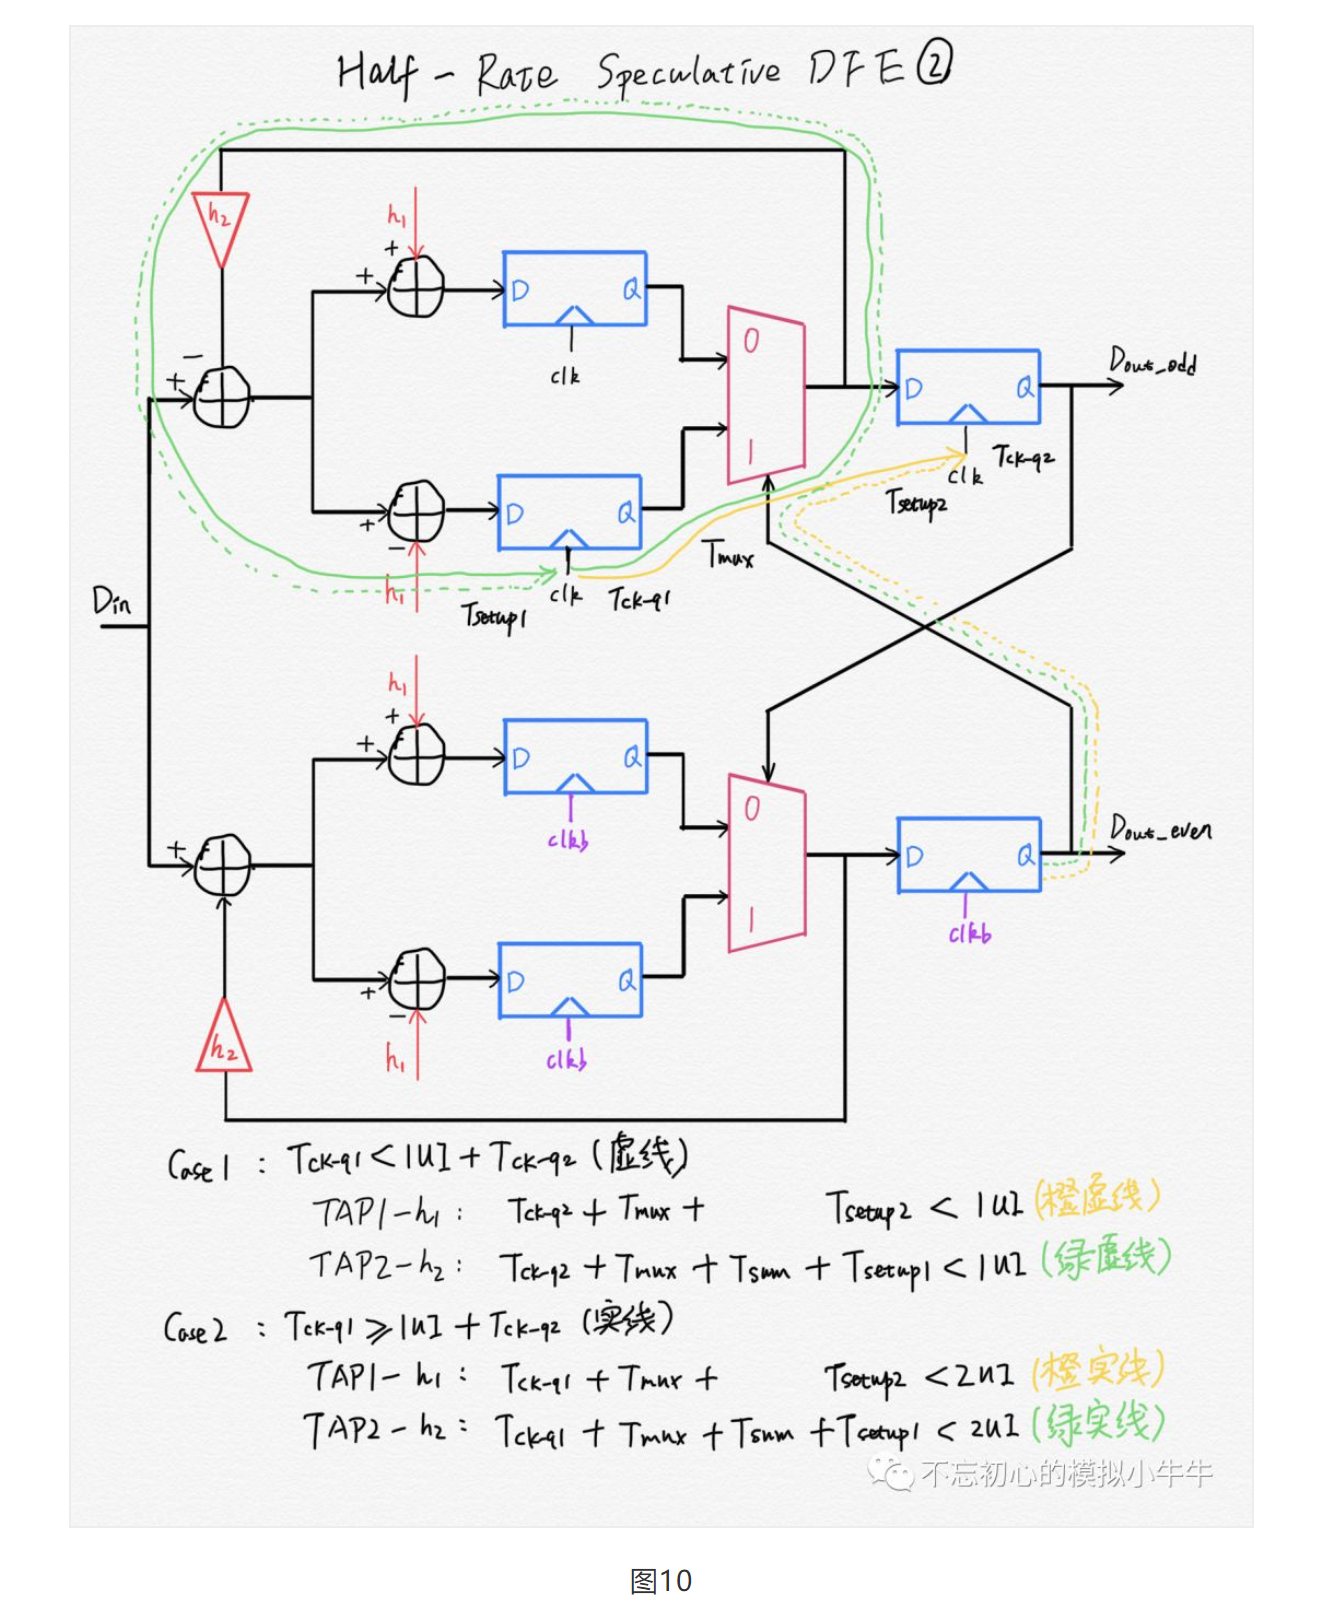 Half-Rate Speculative DFE ②
h₂
h₁
+
+
D Q
clk
0
1
−
+
D Q
Dout_odd
clk
Tck-q2
Tsetup2
+
−
h₁
D Q
clk
Tsetup1
Tck-q1
Tmux
Din
h₁
+
+
D Q
clkb
0
1
+
D Q
Dout_even
clkb
+
−
h₁
D Q
clkb
h₂
Case1 : Tck-q1 < 1UI + Tck-q2 (虚线)
TAP1-h₁ : Tck-q2 + Tmux + Tsetup2 < 1UI (橙虚线)
TAP2-h₂ : Tck-q2 + Tmux + Tsum + Tsetup1 < 1UI (绿虚线)
Case2 : Tck-q1 ⩾ 1UI + Tck-q2 (实线)
TAP1-h₁ : Tck-q1 + Tmux + Tsetup2 < 2UI (橙实线)
TAP2-h₂ : Tck-q1 + Tmux + Tsum + Tsetup1 < 2UI (绿实线)
不忘初心的模拟小牛牛
图10